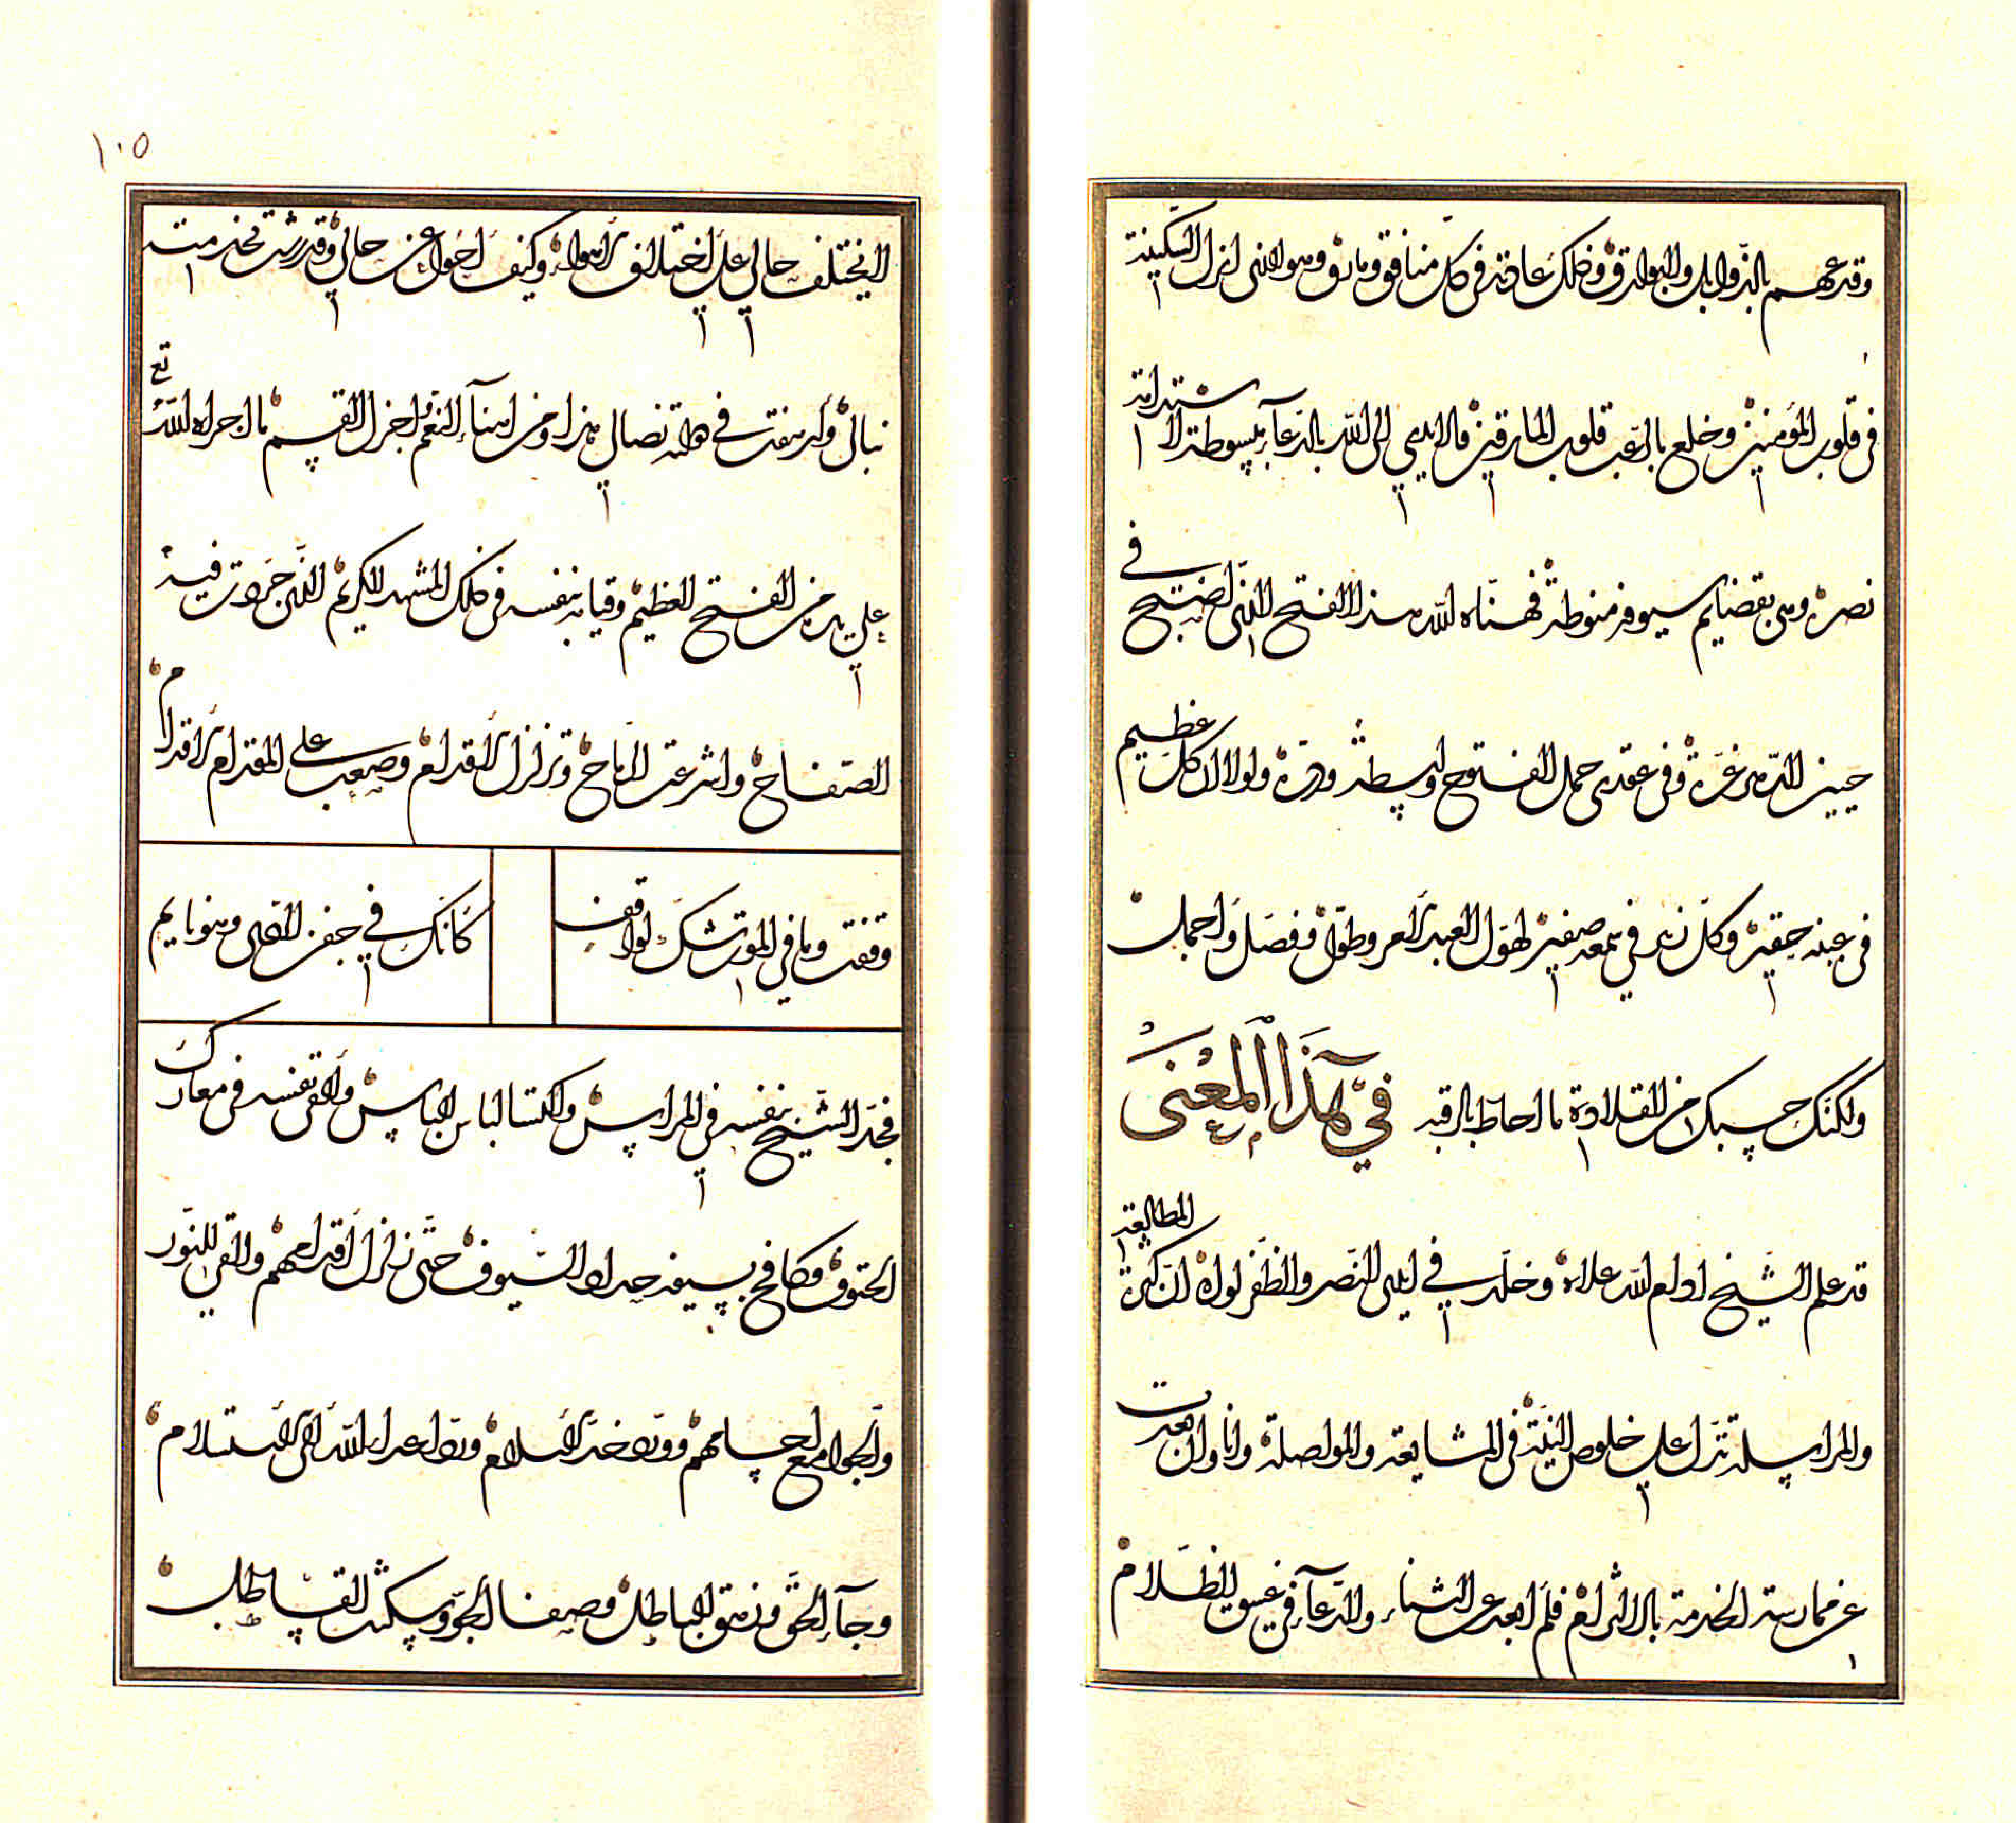 وقد عمهم بالذوابل والبوارق وذلك عادته في كل منافق ومارق وهو الذي انزل السكينة
في قلوب المؤمنين وخلع بالرعب قلوب المارقين فالايدي الى الله بالدعآء مبسوطة لاستدامة
نصره وهي بقضايم سيوفه منوطة فهناه الله هذا الفتح الذي اصبح في
جبين الدهر غرة وفي عقد جمل الفتوح واسطة ودرة ولولا ان كل عظيم
في عينه حقير وكل زير في سمعه صفير لهول العبد الامر وطول وفصل واجمل
ولكنك حسبك من القلادة ما احاط بالرقبه في هذا المعنى
قد علم الشيخ ادام الله علاءه وخلد في ايدي النصر والظفر لواه ان كثرة المطالعة
والمراسلة تدل على خلوص النية في المشايعة والمواصلة وانا وان بعدت
عن ممارسة الخدمة بالالتزام فلم ابعد عن الثناء والدعآء في غسق الظلام
١٠٥
لايختلف حالي على اختلاف الاهواء وكيف احول عن حالي وقد رشت بخدمته
نبالي وارهفت في دولته نصالي هذا ومن اهنآء النعم واجزل القسم ما اجراه الله تع
على يده من الفتح العظيم وقيامه بنفسه في ذلك المشهد الكريم الذي جردت فيه
الصفاح واشرعت الرماح وتزلزل الاقدام وصعب على المقدام الاقدام
وقفت وما في الموت شك لواقف كانك في جفن الردى وهو نايم
فجد الشيخ بنفسه في المراس واكتسا لباس الباس والقى نفسه في معارك
الحتوف وكافح بسيفه حداد السيوف حتى زلزل اقدامهم والقى للنور
والجوامع اجسامهم وورد خد الاسلام ورد اعداء الله الى الاستسلام
وجآء الحق وزهق الباطل وصفا الجو وسكنت القساطل